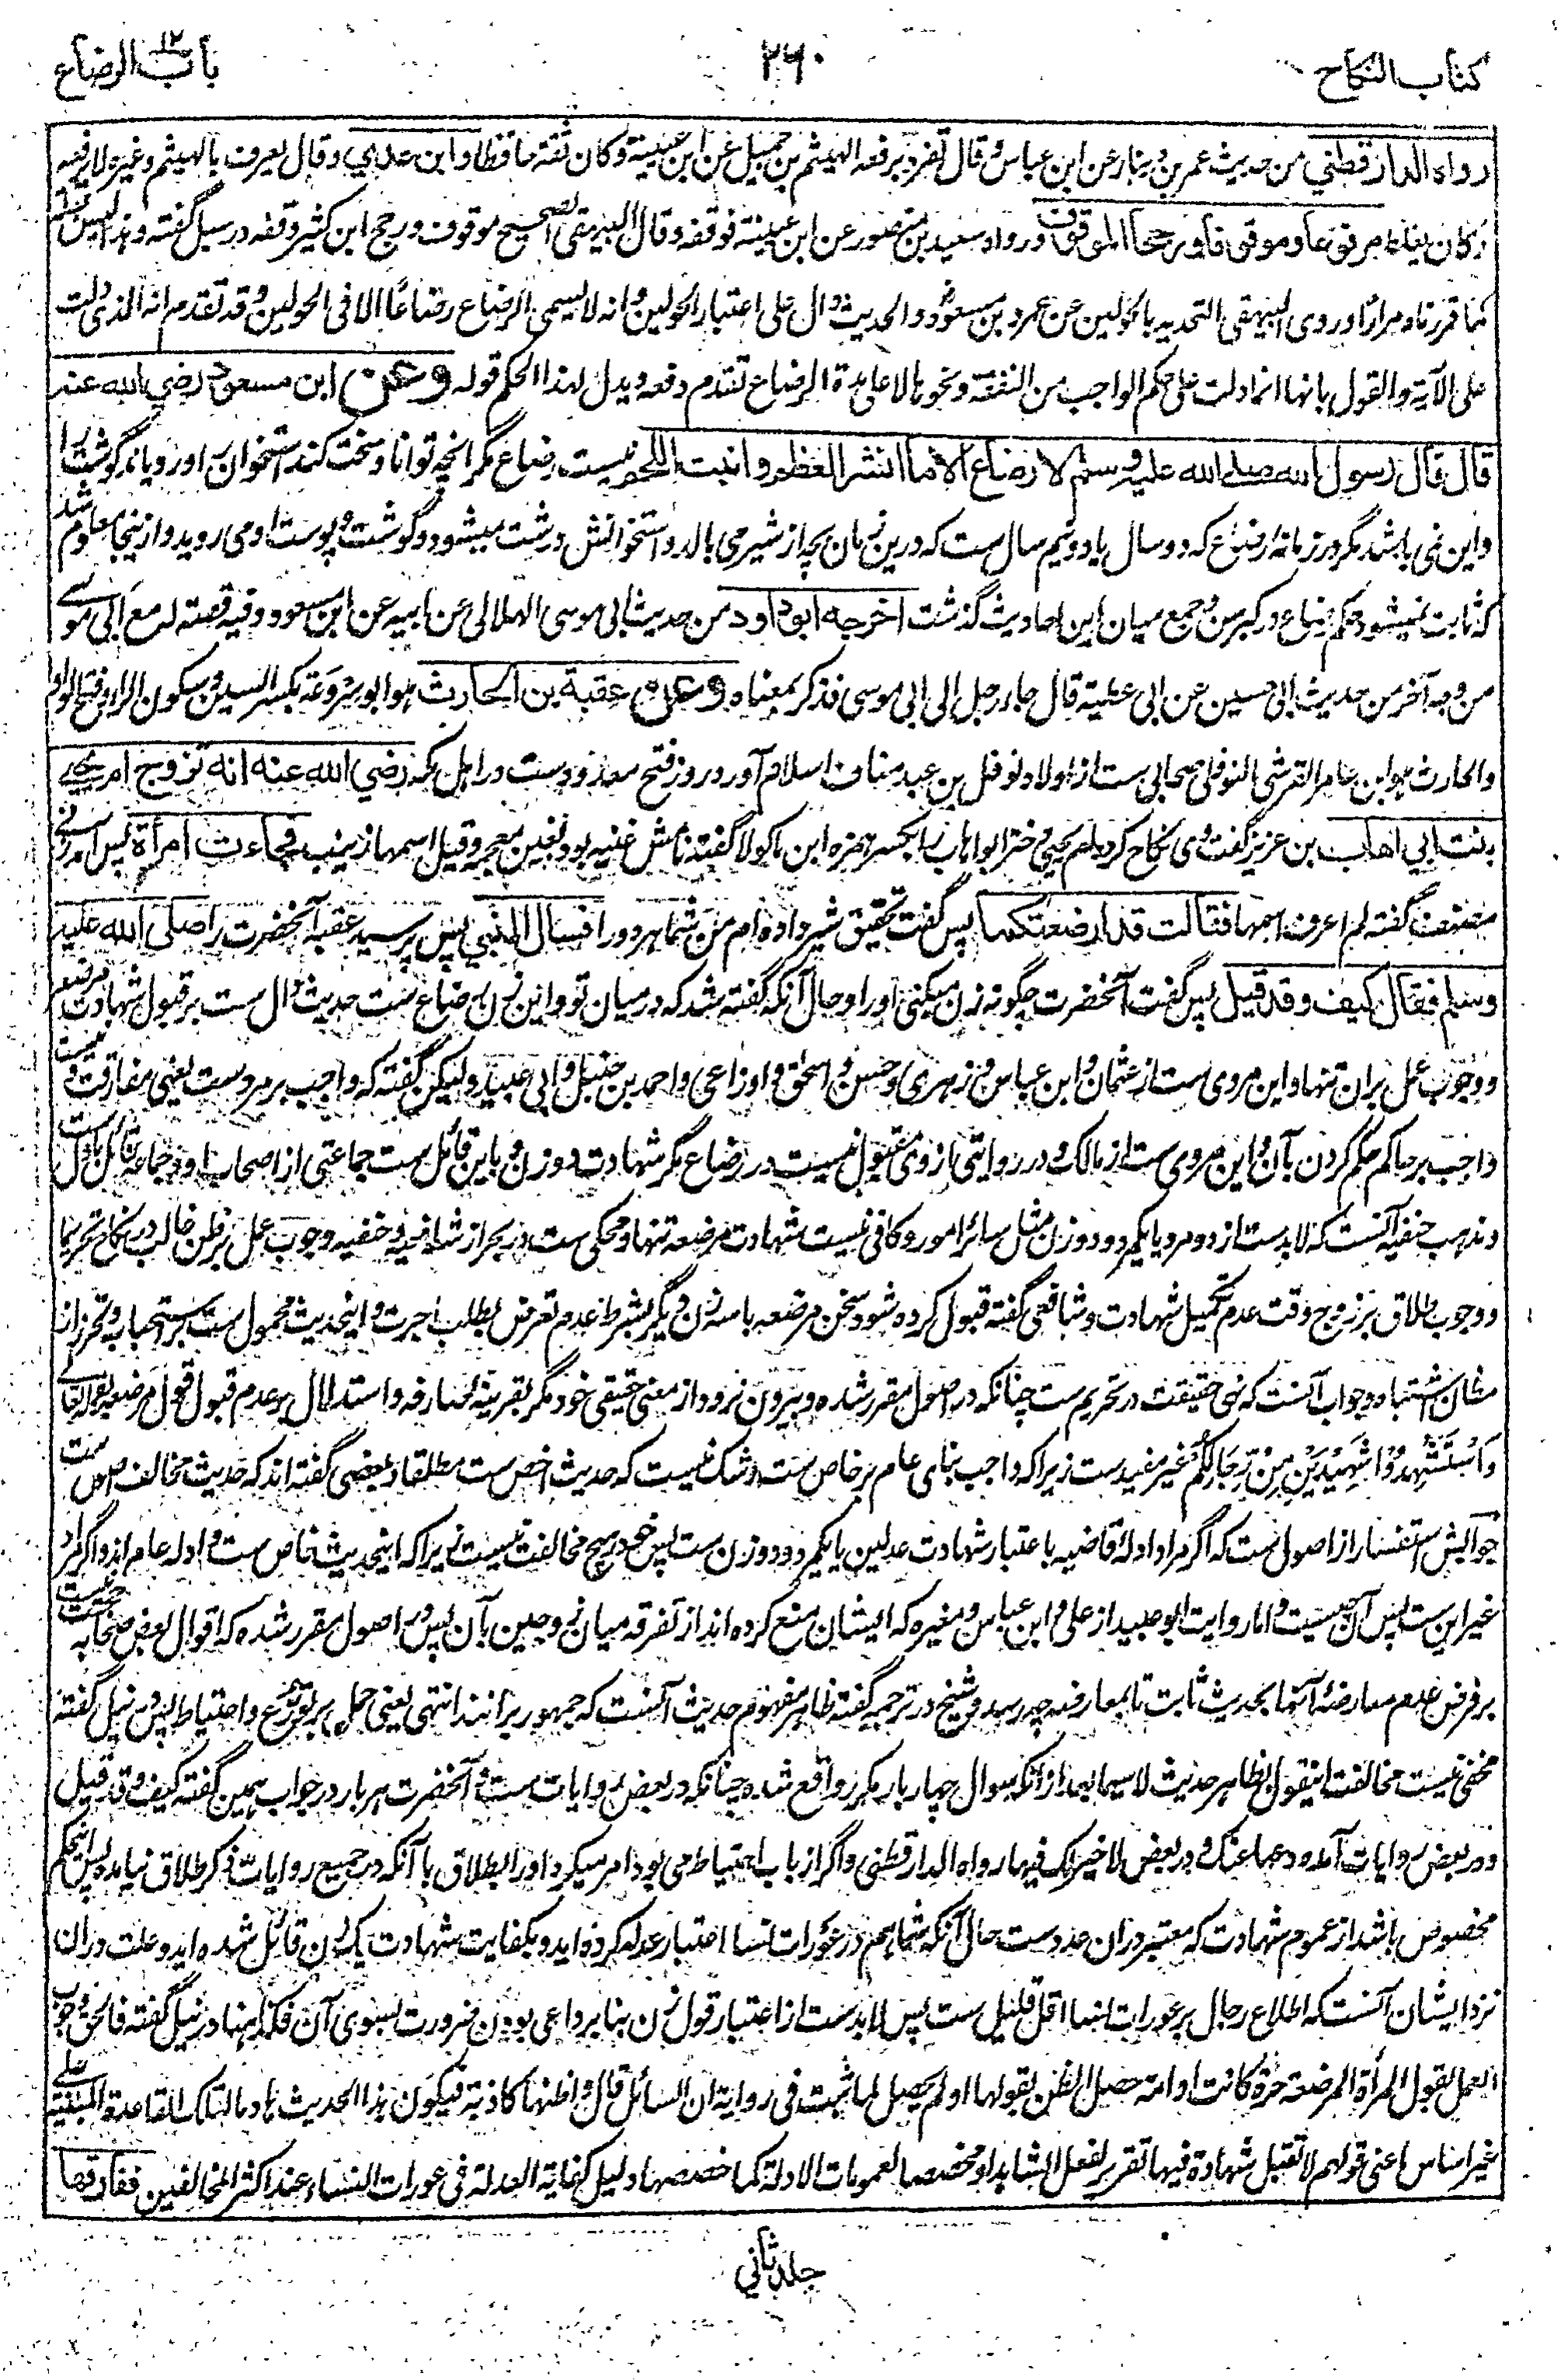 كتاب النكاح
٢٦٠
باب الرضاع
١٢
رواه الدارقطني من حديث عمر بن دينار عن ابن عباس وقال تفرد برفعه الهيثم بن جميل عن ابن عيينة وكان ثقة حافظا وابن عدي وقال يعرف بالهيثم وغيره لا يرفعه
وكان يغلط مرفوعا وموقوفا ورجحا الموقوف ورواه سعيد بن منصور عن ابن عيينة فوقفه وقال البيهقي الصحيح موقوف ورجح ابن كثير وقفه در سبل گفته وهذا ليس بعلة
كما قررناه مرارا وروى البيهقي التحديد بالحولين عن عمر وابن مسعود والحديث دال على اعتبار الحولين وانه لا يسمى الرضاع رضاعا الا في الحولين وقد تقدم انه الذي دلت
على الآية والقول بانها انما دلت على حكم الواجب من النفقة ونحوها لا على مدة الرضاع تقدم دفعه ويدل لهذا الحكم قوله وعن ابن مسعود رضي الله عنه
قال قال رسول الله صلى الله عليه وسلم لا رضاع الا ما انشر العظم وانبت اللحم نيست رضاع مگر انچه توانا وسخت كند استخوان را وروياند گوشت را
واين نمى باشد مگر در زمانهٔ رضاع كه دو سال يا دو نيم سال ست كه درين زمان بچه از شير مى بالد واستخوانش درشت ميشود وگوشت وپوست او مى رويد وازينجا معلوم شد
كه ثابت نميشود حكم رضاع در كبر سن وجمع ميان اين احاديث گذشت اخرجه ابو داود من حديث ابى موسى الهلالى عن ابيه عن ابن مسعود وفيه قصة له مع ابى موسى
من وجه آخر من حديث ابى حسين عن ابى عطية قال جاء رجل الى ابى موسى فذكر بمعناه وعن عقبة بن الحارث هو ابو سروعة بكسر السين وسكون الراء وفتح الواو
والحارث هو ابن عامر القرشى النوفلى صحابى ست از اولاد نوفل بن عبد مناف اسلام آورد روز فتح معدود ست در اهل مكه رضي الله عنه انه تزوج ام يحيى
بنت ابي اهاب بن عزيز گفت وى نكاح كردم ام يحيى دختر ابو اهاب را بكسر همزه ابن ماكولا گفته نامش غنيه بود بغين معجمه وقيل اسمها زينب فجاءت امرأة پس آمد زنى
مصنف گفته لم اعرف اسمها فقالت قد ارضعتكما پس گفت تحقيق شير داده ام من شما هر دو را فسال النبي پس پرسيد عقبه آنحضرت را صلى الله عليه
وسلم فقال كيف وقد قيل پس گفت آنحضرت چگونه زن ميكنى او را وحال آنكه گفته شد كه در ميان تو واين زن رضاع ست حديث دال ست بر قبول شهادت مرضعه
ووجوب عمل بران تنها واين مروى ست از عثمان وابن عباس وزهرى وحسن واسحق واوزاعى واحمد بن حنبل وابى عبيد وليكن گفته كه واجب بر مرد ست يعنى مفارقت ونيست
واجب بر حاكم حكم كردن بآن واين مروى ست از مالك ودر روايتى از وى مقبول نيست در رضاع مگر شهادت دو زن وباين قائل ست جماعتى از اصحاب او وجماعه قائل باول ست
ومذهب حنفيه آنست كه لا بد ست از دو مرد يا يكمرد ودو زن مثل سائر امور وكافى نيست شهادت مرضعه تنها ومحكى ست در بحر از شافعيه وحنفيه وجوب عمل بر ظن غالب در نكاح تحريما
ووجوب طلاق بر زوج وقت عدم تكميل شهادت وشافعى گفته قبول كرده شود سخن مرضعه با سه زن ديگر بشرط عدم تعرض بطلب اجرت واينحديث محمول ست بر استحباب وتحرز از
مظان اشتباه وجواب آنست كه نهى حقيقت در تحريم ست چنانكه در اصول مقرر شده وبيرون نرود از معنى حقيقى خود مگر بقرينهٔ صارفه واستدلال بر عدم قبول قول مرضعه بقوله تعالى
وَاسْتَشْهِدُوْا شَهِيْدَيْنِ مِنْ رِجَالِكُمْ غير مفيد ست زيراكه واجب بناى عام بر خاص ست وشك نيست كه حديث اخص ست مطلقا وبعضى گفته اند كه حديث مخالف اصول ست
جوابش استفسار از اصول ست كه اگر مراد ادلهٔ قاضيه باعتبار شهادت عدلين يا يكمرد ودو زن ست پس خود هيچ مخالفت نيست زيراكه اينحديث خاص ست وادله عام اند واگر مراد
غير اين ست پس آن چيست واما روايت ابو عبيد از على وابن عباس ومغيره كه ايشان منع كرده اند از تفرقه ميان زوجين بآن پس در اصول مقرر شده كه اقوال بعض صحابه حجت نيست
بر فرض عدم معارضهٔ آنها بحديث ثابت تا بمعارضه چه رسد وشيخ در ترجمه گفته ظاهر مفهوم حديث آنست كه جمهور برانند انتهى يعنى حمل بر تورع واحتياط ليكن در نيل گفته
مخفى نيست مخالفت اينقول بظاهر حديث لا سيما بعد از آنكه سوال چهار بار مكرر واقع شده چنانكه در بعض روايات ست وآنحضرت هر بار در جواب همين گفته كيف وقد قيل
ودر بعض روايات آمده دعها عنك ودر بعض لا خير لك فيها رواه الدارقطنى واگر از باب احتياط مى بود امر ميكرد او را بطلاق با آنكه در جميع روايات ذكر طلاق نيامده پس اينحكم
مخصوص باشد از عموم شهادت كه معتبر دران عدد ست حال آنكه شما هم در عورات نسا اعتبار عدله كرده ايد وبكفايت شهادت يك زن قائل شده ايد وعلت دران
نزد ايشان آنست كه اطلاع رجال بر عورات نسا اقل قليل ست پس لا بد ست از اعتبار قول زن بنا بر داعى بودن ضرورت بسوى آن فكذا هنا ودر نيل گفته فالحق وجوب
العمل بقول المرأة المرضعة حرة كانت او امة حصل الظن بقولها او لم يحصل لما ثبت فى رواية ان السائل قال واظنها كاذبة فيكون هذا الحديث هادما لتلك القاعدة المبنية على
غير اساس اعنى قولهم لا تقبل شهادة فيها تقرير لفعل الشاهد ومخصصا لعمومات الادلة كما خصصها دليل كفاية العدلة فى عورات النساء عند اكثر المخالفين ففارقها
جلد ثاني